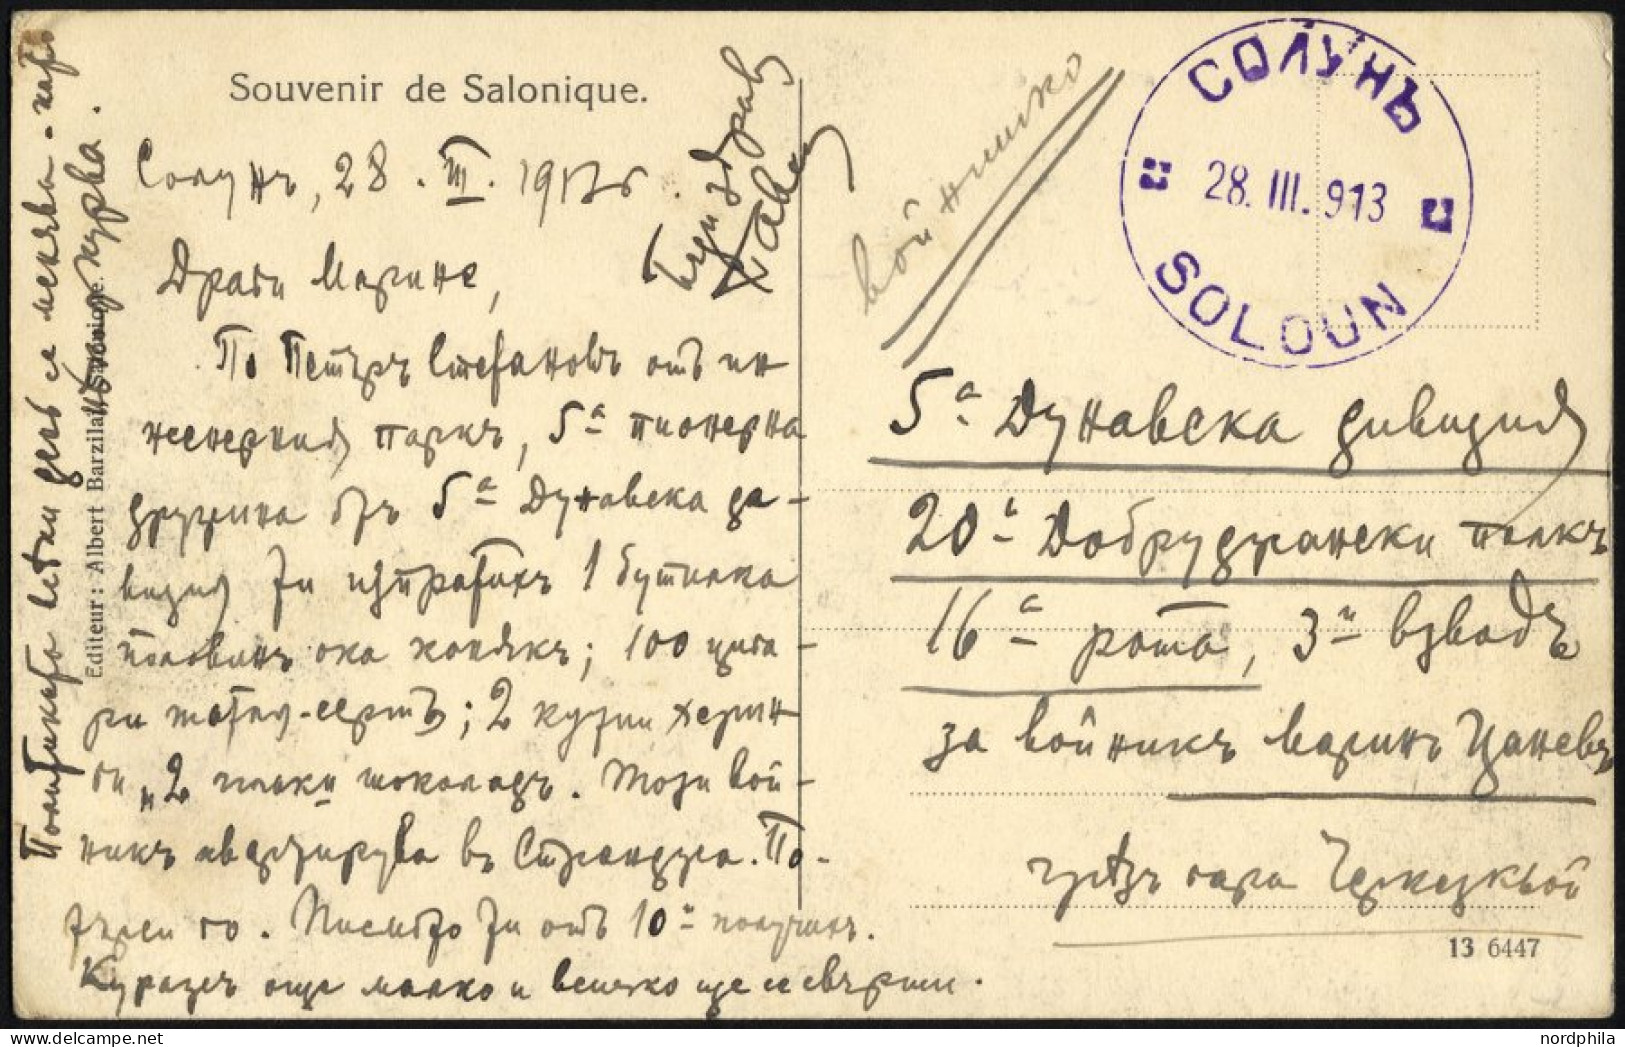 Souvenir de Salonique.
Солунъ, 28. III. 1913 г.
Драги Марине,
По Петъръ Стефановъ отъ ин
женерния паркъ, 5ª пионерна
дружина отъ 5ª Дунавска ди-
визия ти изпратихъ 1 бутилка
половинъ ока конякъ; 100 цига-
ри ; 2 кутии
2 шоколадъ. Този вой-
никъ квартирува въ . По-
търси го. Писмото ти отъ 10й получихъ.
Куражъ още малко и всичко ще се свърши.
Политиката всѣки день се мѣнява - като
курва.
Бѫди здравъ
Editeur: Albert Barzilai, Salonique.
войнишко
СОЛУНЪ
28. III. 913
SOLOUN
5ª Дунавска дивизия
20й Добруджански полкъ
16ª рота, 3й взводъ
за войникъ Маринъ Цаневъ
чрѣзъ гара Черкезкьой
13 6447
nordphila